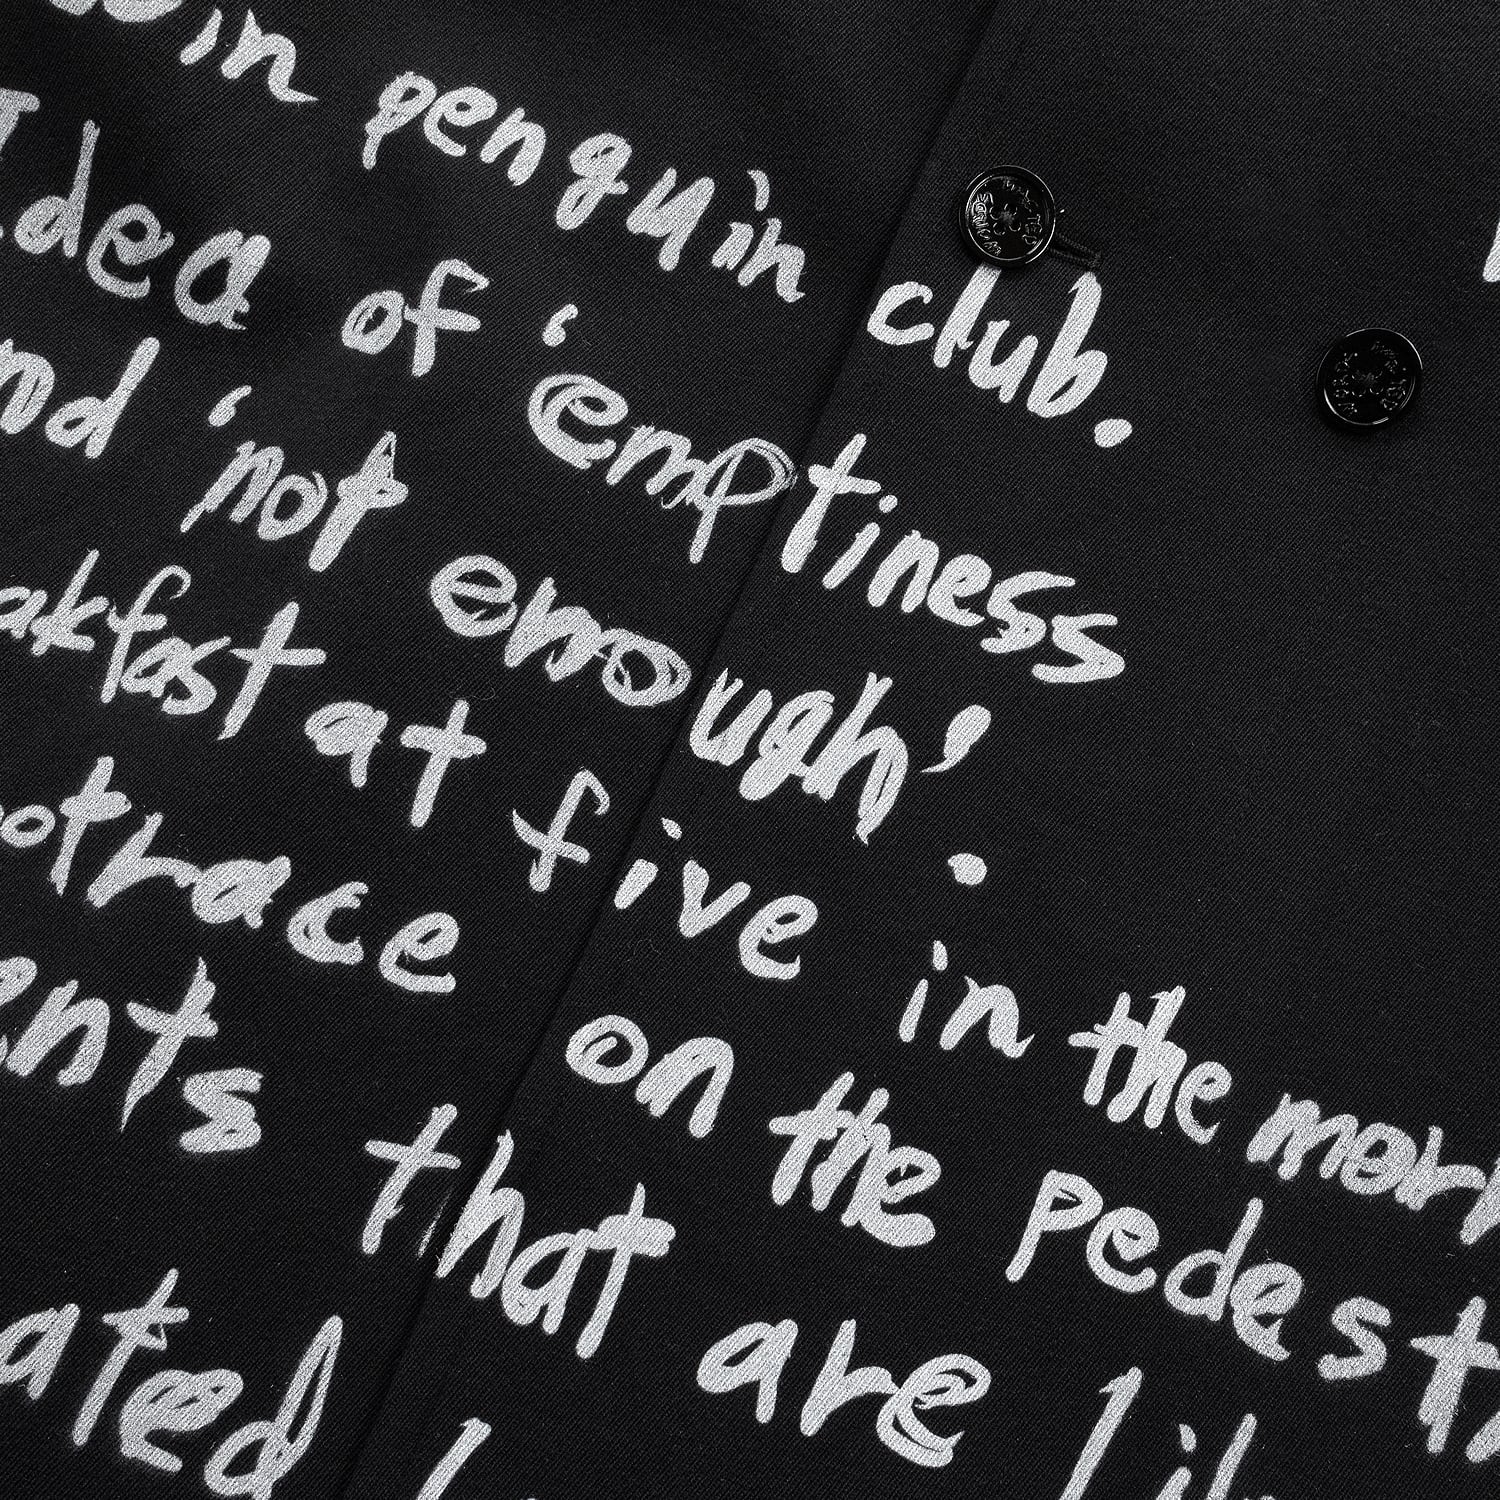 in penguin club.
Idea of 'emptiness
nd 'not enough'.
akfast at five in the mor
otrace on the pedest
ents that are li
ated l